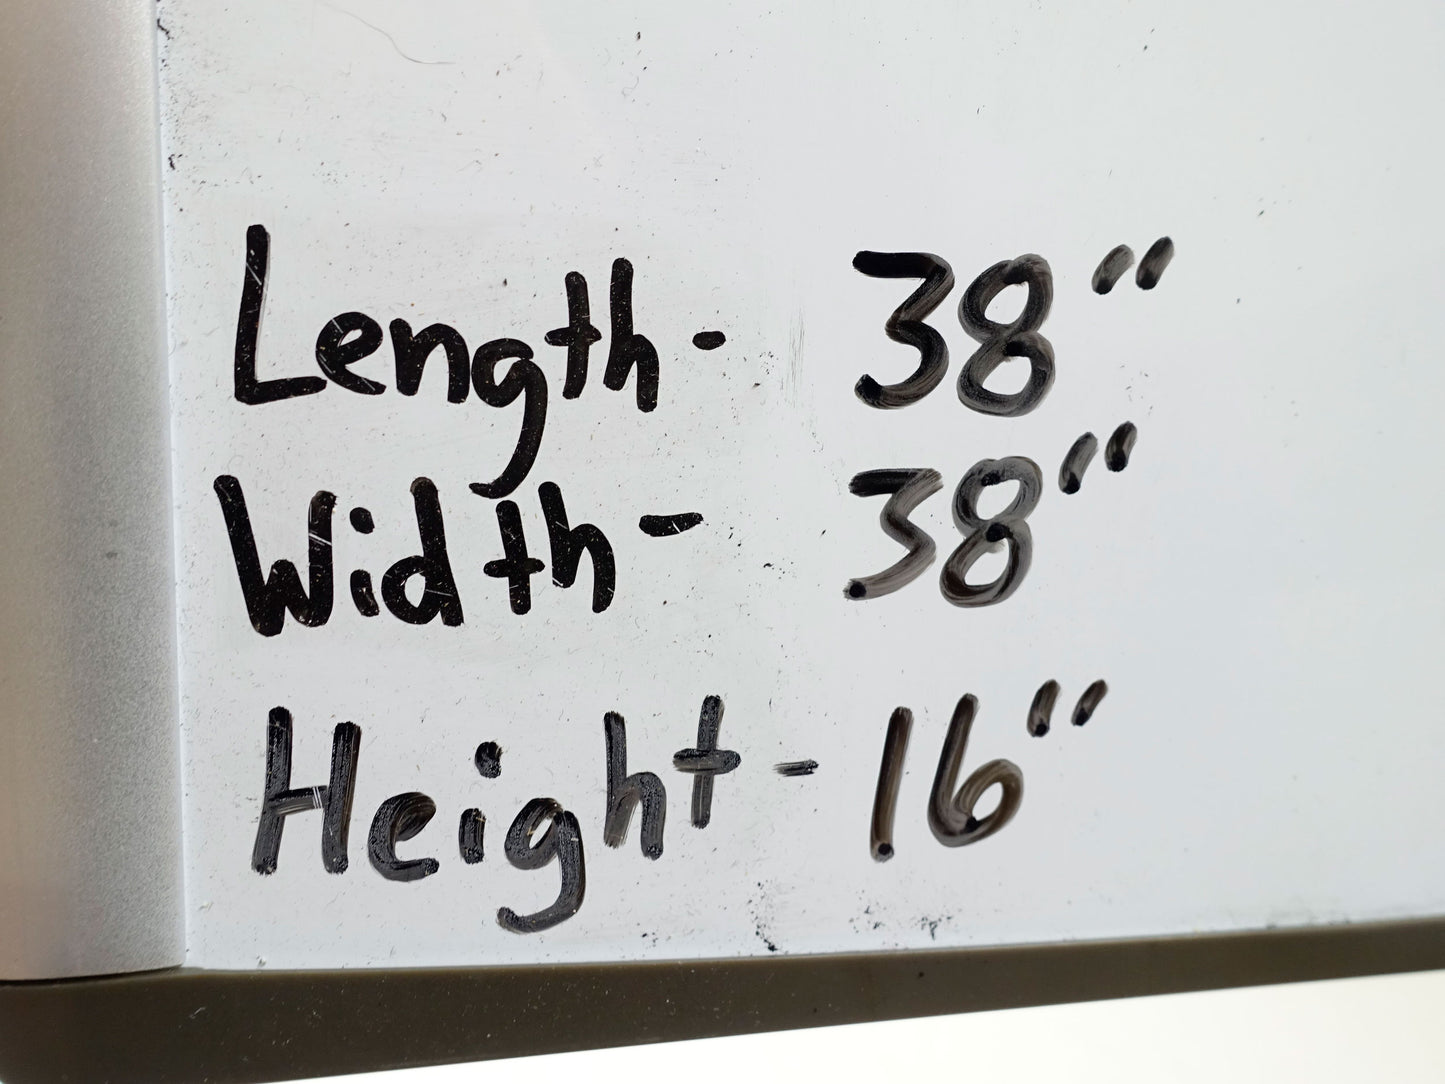 Length - 38"
Width - 38"
Height - 16"